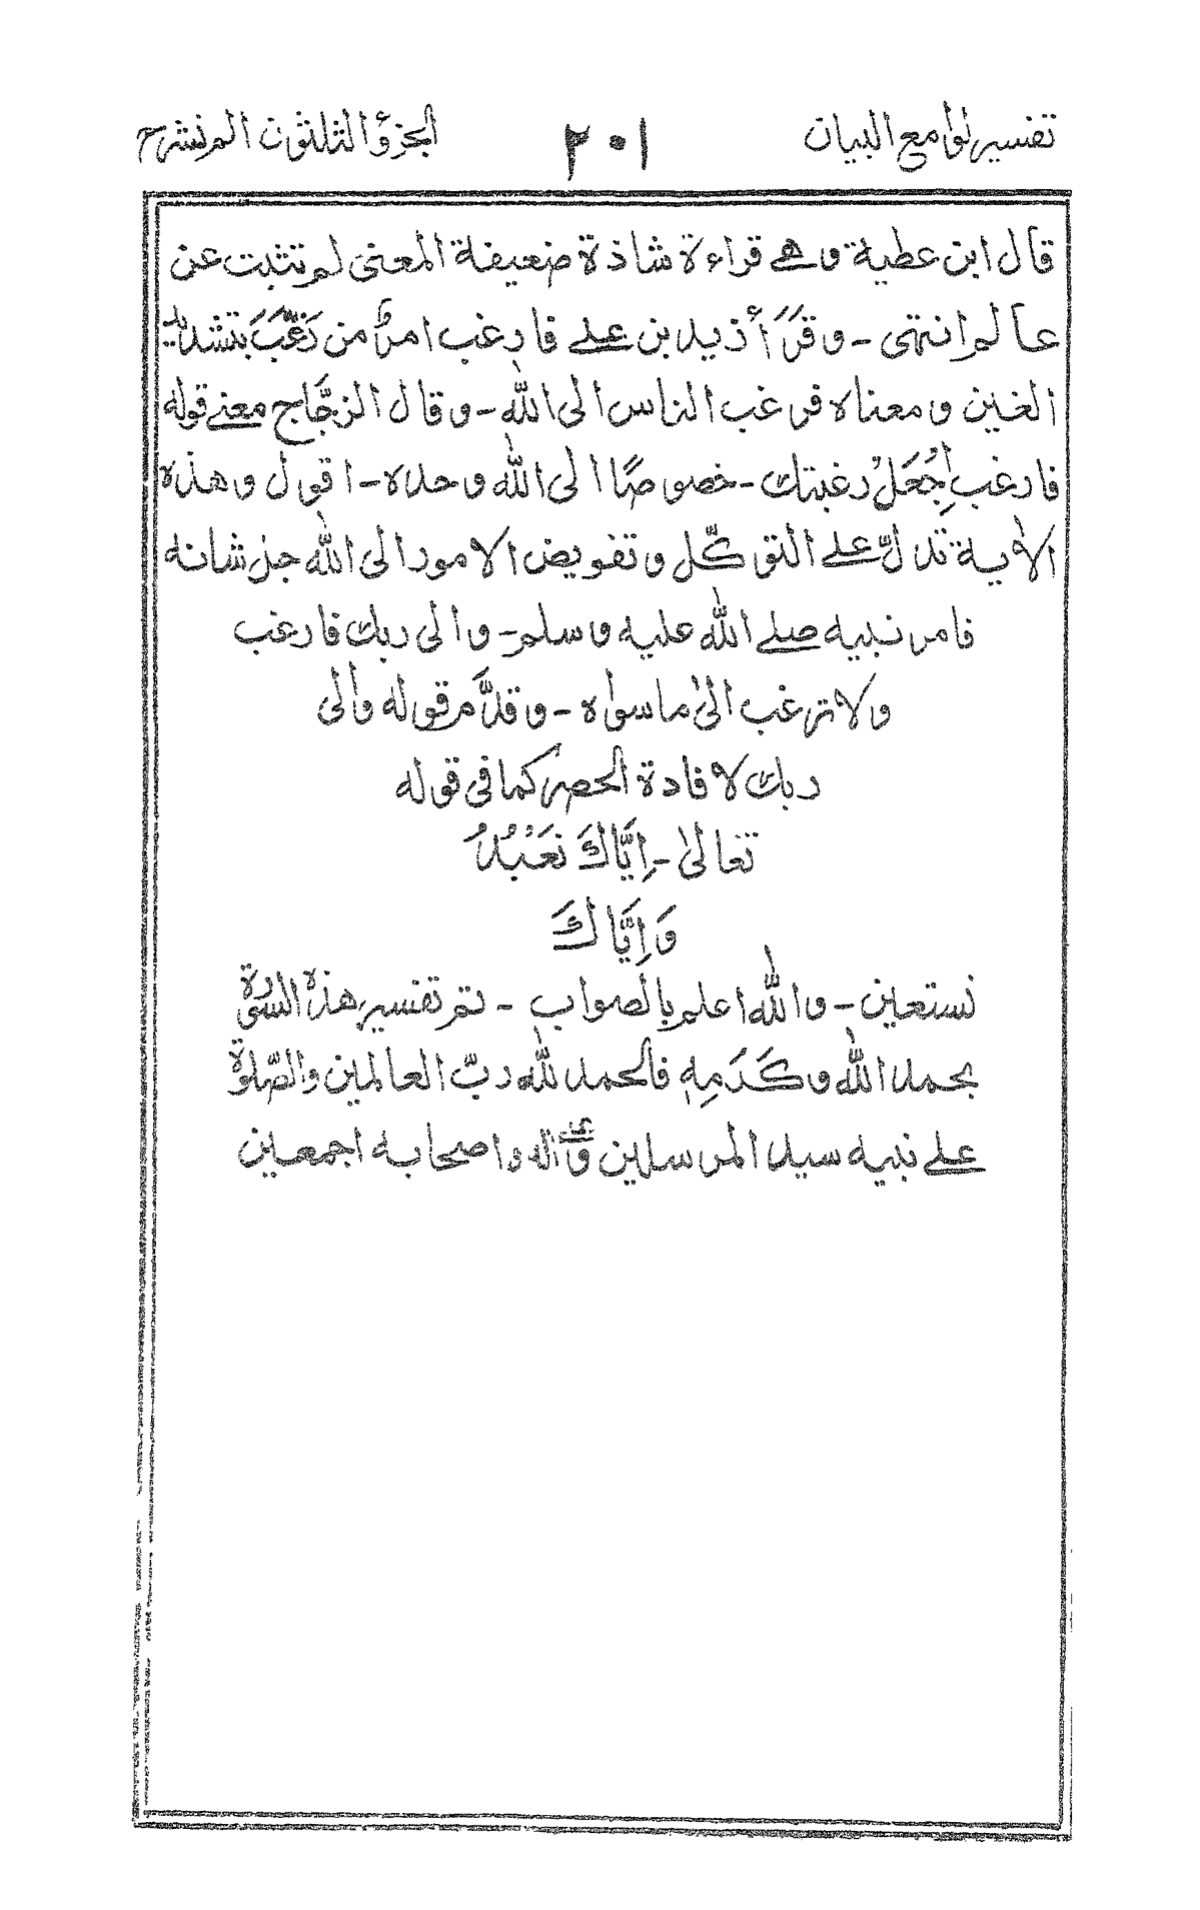 تفسير لوامع البيان ٢٠١ الجزؤ الثلثون الم نشرح
قال ابن عطية وهي قراءة شاذة ضعيفة المعنى لم تثبت عن
عالم انتهى - وقَرَأ زيد بن علي فارغب امرٌ من رَغَّبَ بتشديد
الغين ومعناه فرغب الناس الى الله - وقال الزجَّاج معنى قوله
فارغب اِجْعَلْ رغبتك - خصوصًا الى الله وحده - اقول وهذه
الاٰية تدلّ على التوكّل وتفويض الامور الى الله جل شانه
فامر نبيه صلى الله عليه وسلم - والى ربك فارغب
ولا ترغب الىٰ ما سواه - وقدَّم قوله والى
ربك لافادة الحصر كما فى قوله
تعالىٰ - اِيَّاكَ نَعْبُدُ
وَاِيَّاكَ
نستعين - والله اعلم بالصواب - تم تفسير هذه السورة
بحمد الله وكَرَمِهٖ فالحمد لله ربّ العالمين والصّلوة
على نبيه سيد المرسلين وعلى اٰله واصحابه اجمعين